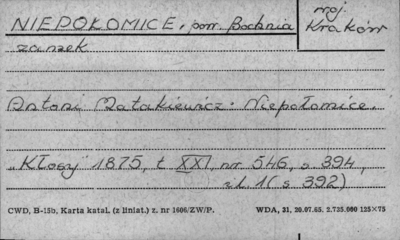 NIEPOŁOMICE, pow. Bochnia
woj. Kraków
zamek
Antoni Matakiewicz. Niepołomice.
„Kłosy" 1875, t XXI, nr. 546, s. 394,
il. 1 (s 392)
CWD, B-15b, Karta katal. (z liniat.) z. nr 1606/ZW/P. WDA, 31, 20.07.65. 2.735.000 125×75